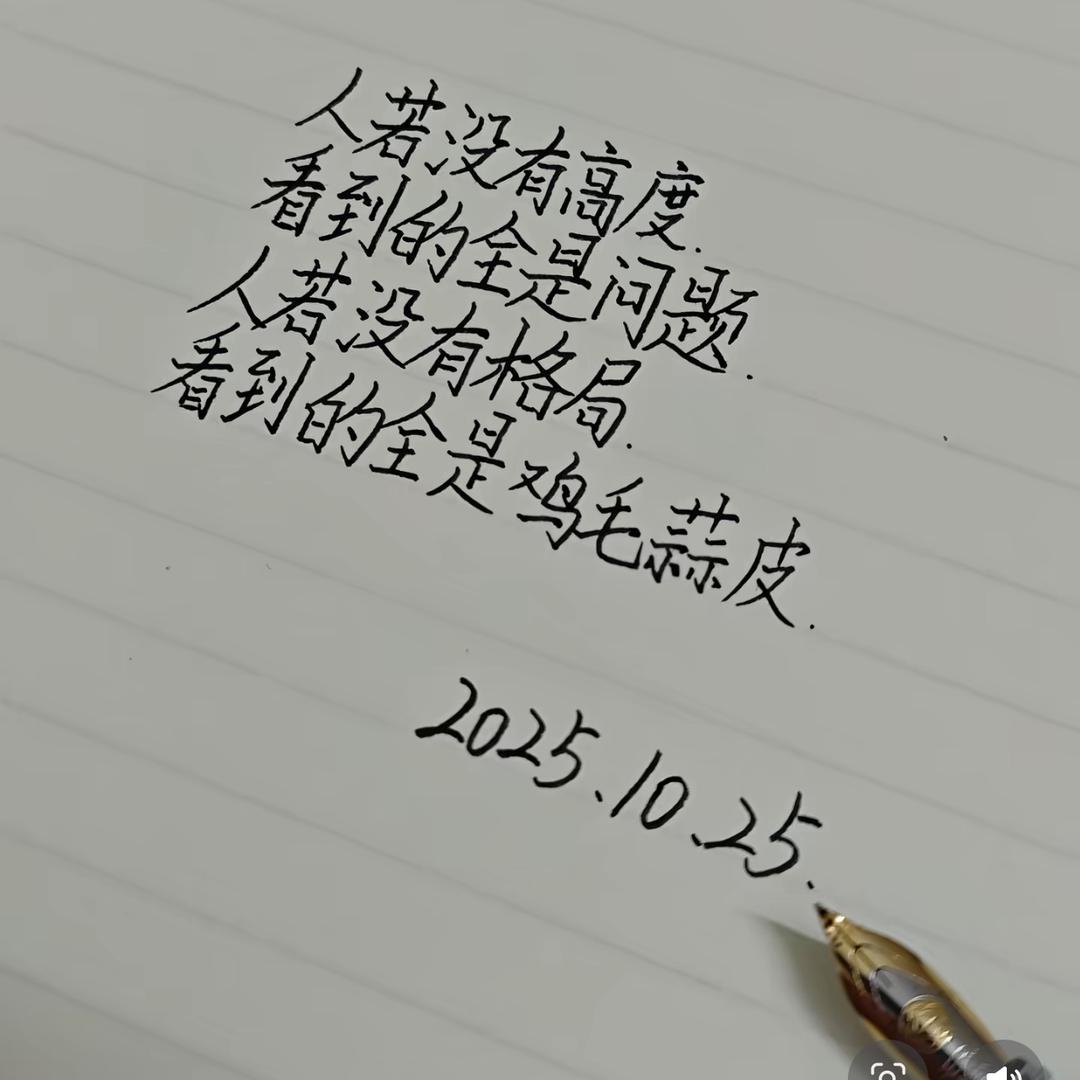 人若没有高度.
看到的全是问题.
人若没有格局.
看到的全是鸡毛蒜皮.
2025.10.25.